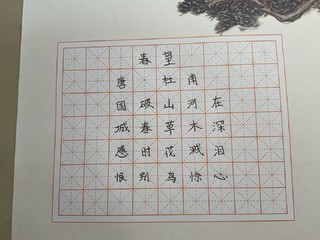 春望
唐 杜甫
国破山河在
城春草木深
感时花溅泪
恨别鸟惊心